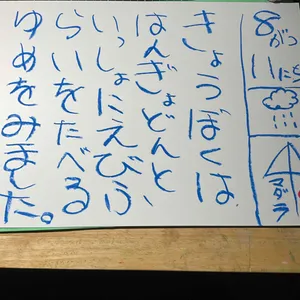 8がつ
11にち
マダラ
きょうぼくは
はんぎょどんと
いっしょにえびふ
らいをたべる
ゆめをみました。